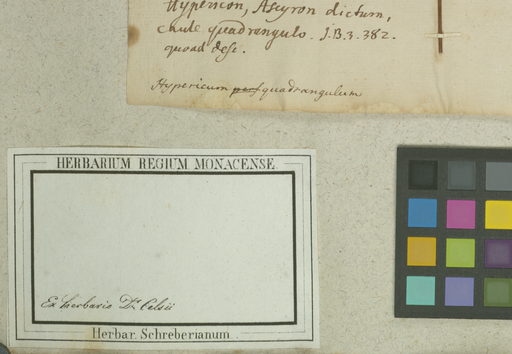 Hypericon, Ascyron dictum,
caule quadrangulo. J.B.3.382.
quoad desc.
Hypericum perf quadrangulum
HERBARIUM REGIUM MONACENSE.
Ex herbario Dr. Celsii
Herbar. Schreberianum